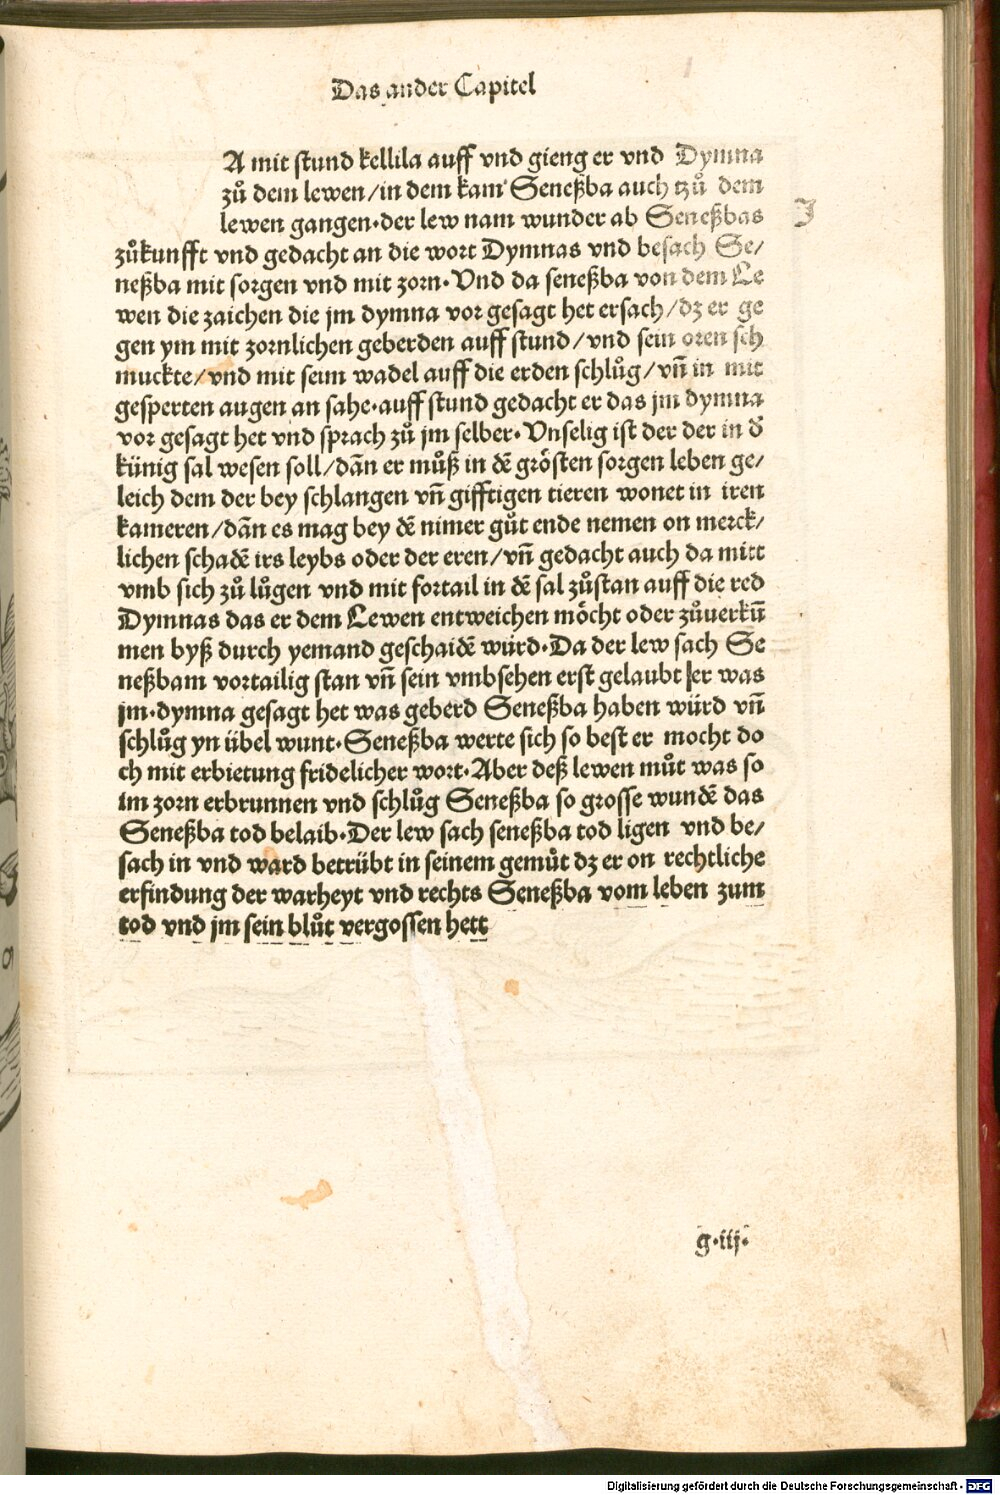 Das ander Capitel
A mit stund kellila auff vnd gieng er vnd Dymna
zuͦ dem lewen/in dem kam Seneßba auch tzuͦ dem
lewen gangen·der lew nam wunder ab Seneßbas
J
zuͦkunfft vnd gedacht an die wort Dymnas vnd besach Se/
neßba mit sorgen vnd mit zorn·Vnd da seneßba von dem Le
wen die zaichen die jm dymna vor gesagt het ersach/dz er ge
gen ym mit zornlichen geberden auff stund/vnd sein oren sch
muckte/vnd mit seim wadel auff die erden schluͦg/vn̄ in mit
gesperten augen an sahe·auff stund gedacht er das jm dymna
vor gesagt het vnd sprach zuͦ jm selber·Vnselig ist der der in d̕
künig sal wesen soll/dān er muͦß in dē groͤsten sorgen leben ge/
leich dem der bey schlangen vn̄ gifftigen tieren wonet in iren
kameren/dān es mag bey dē nimer guͦt ende nemen on merck/
lichen schadē irs leybs oder der eren/vn̄ gedacht auch da mitt
vmb sich zuͦ luͦgen vnd mit fortail in dē sal zuͦstan auff die red
Dymnas das er dem Lewen entweichen moͤcht oder zuͦuerkū
men byß durch yemand geschaidē würd·Da der lew sach Se
neßbam vortailig stan vn̄ sein vmbsehen erst gelaubt er was
jm·dymna gesagt het was geberd Seneßba haben würd vn̄
schluͦg yn übel wunt·Seneßba werte sich so best er mocht do
ch mit erbietung fridelicher wort·Aber deß lewen muͦt was so
im zorn erbrunnen vnd schluͦg Seneßba so grosse wundē das
Seneßba tod belaib·Der lew sach seneßba tod ligen vnd be/
sach in vnd ward betrübt in seinem gemuͦt dz er on rechtliche
erfindung der warheyt vnd rechts Seneßba vom leben zum
tod vnd jm sein bluͦt vergossen hett
g·iij·
Digitalisierung gefördert durch die Deutsche Forschungsgemeinschaft - DFG